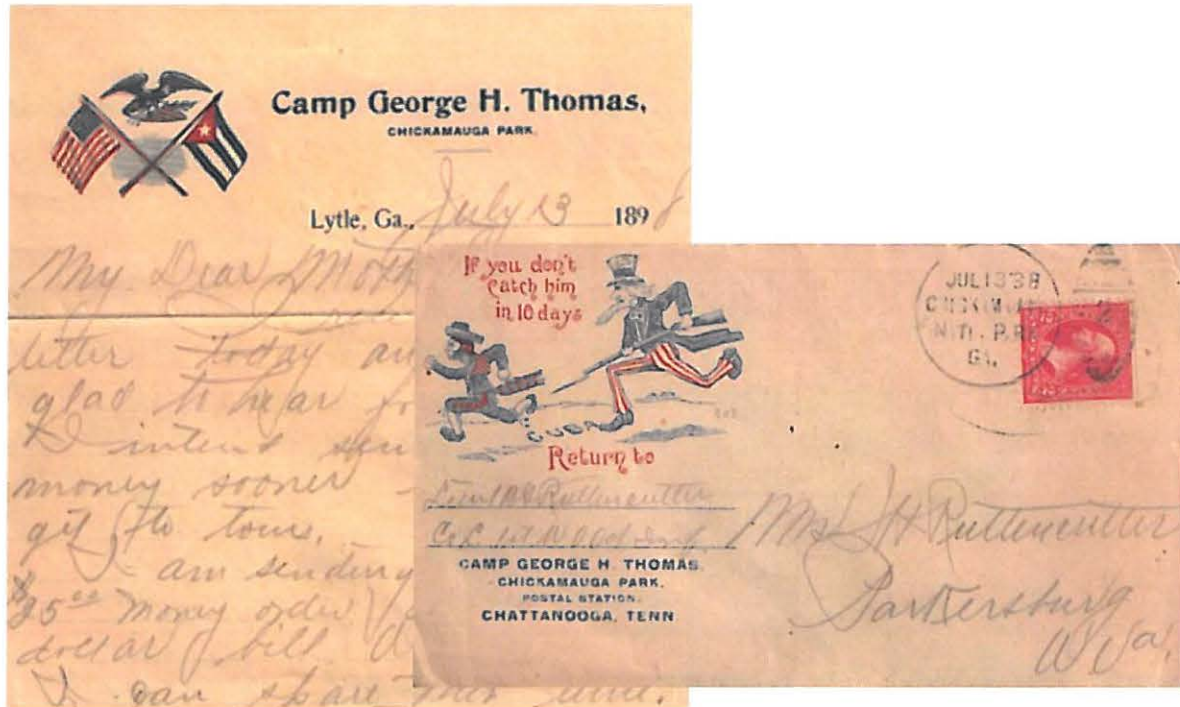 Camp George H. Thomas,
CHICKAMAUGA PARK.
Lytle, Ga., July 13 1898
My Dear Moth
letter today an
glad to hear
I intend sen
money sooner
to town.
I am sending
$25 00 money order
dollar bill
I can spare
If you don't
catch him
in 10 days
CUBA
Return to
Ruttencutter
Co
CAMP GEORGE H. THOMAS,
CHICKAMAUGA PARK.
POSTAL STATION.
CHATTANOOGA, TENN
JUL 13
GA.
Mrs J H Ruttencutter
Parkersburg
W Va,